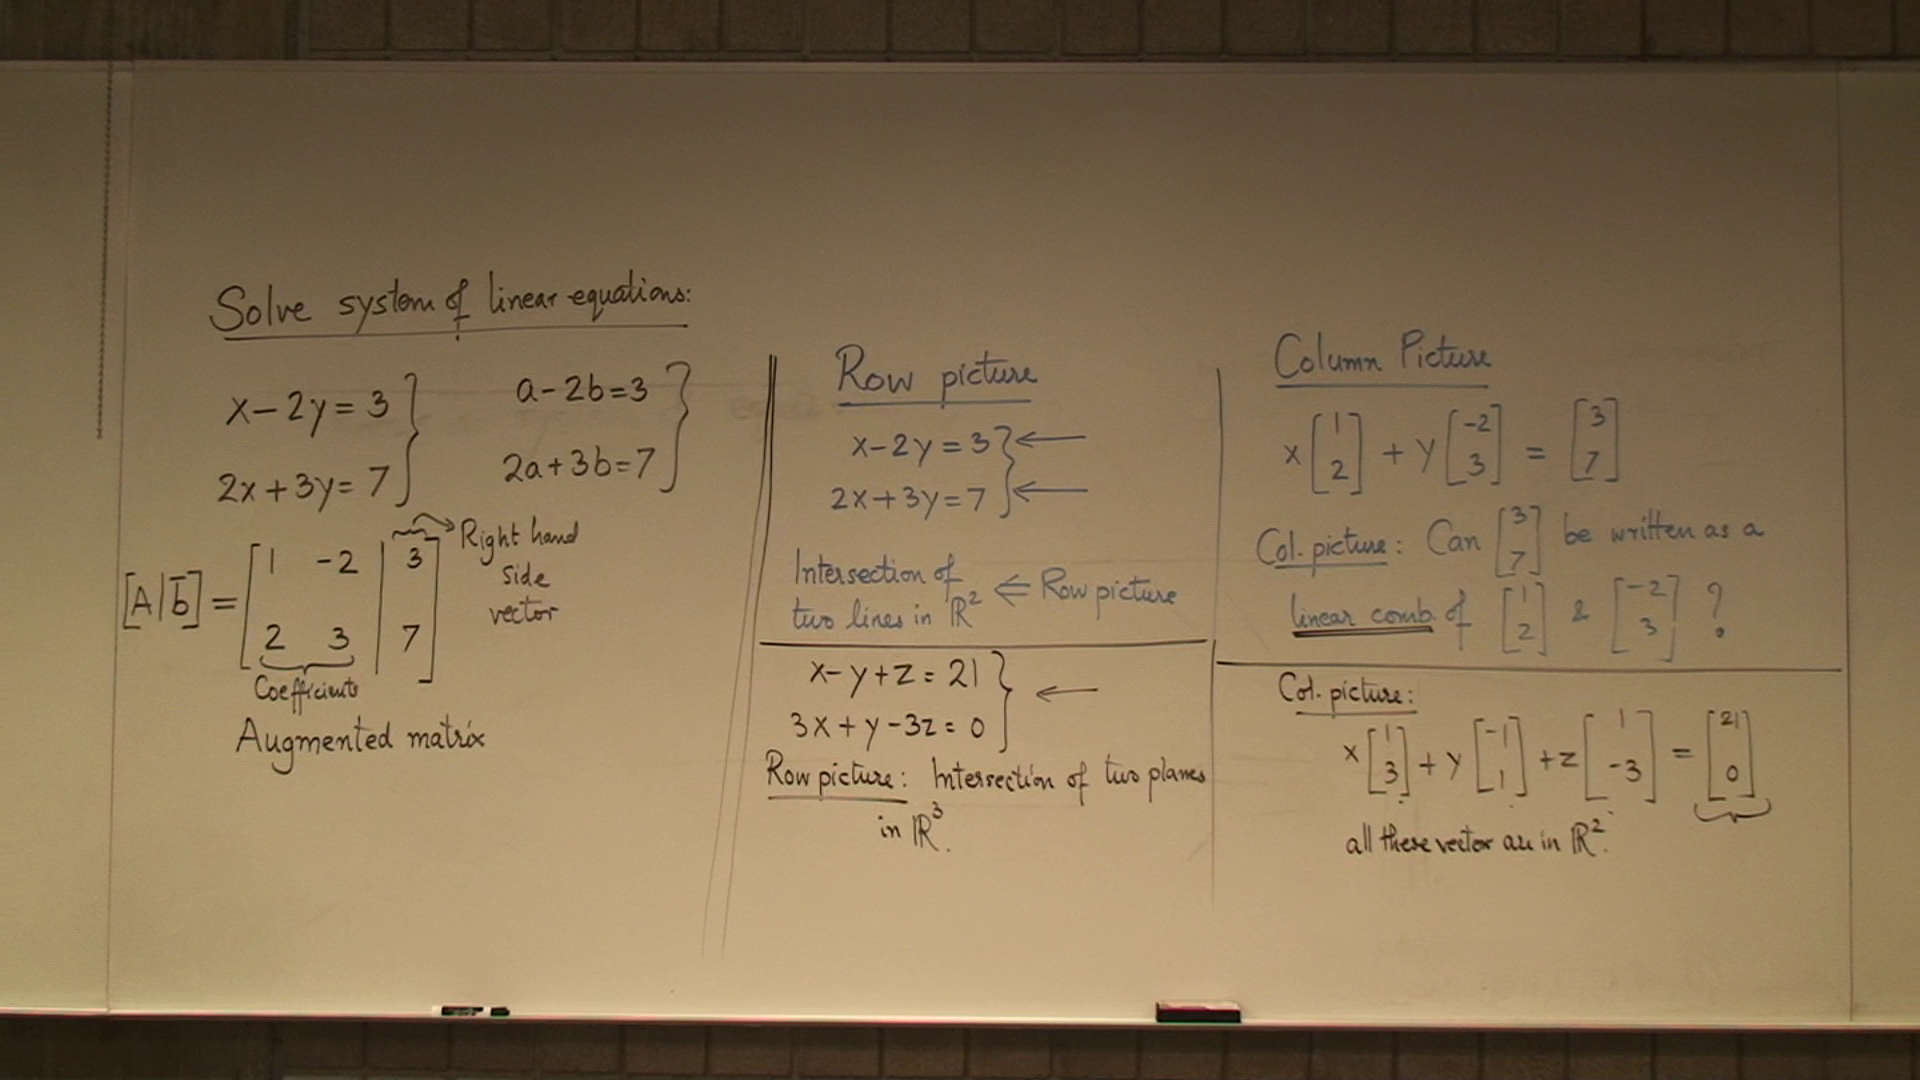 Solve system of linear equations:
x - 2y = 3
2x + 3y = 7
a - 2b = 3
2a + 3b = 7
[A | b̄] = [1 -2 | 3
2 3 | 7]
Right hand
side
vector
Coefficients
Augmented matrix
Row picture
x - 2y = 3 ←
2x + 3y = 7 ←
Intersection of
two lines in ℝ² ⇐ Row picture
x - y + z = 21
3x + y - 3z = 0
←
Row picture: Intersection of two planes
in ℝ³.
Column Picture
x [1 2] + y [-2 3] = [3 7]
Col. picture: Can [3 7] be written as a
linear comb. of [1 2] & [-2 3] ?
Col. picture:
x [1 3] + y [-1 1] + z [1 -3] = [21 0]
all these vector are in ℝ².